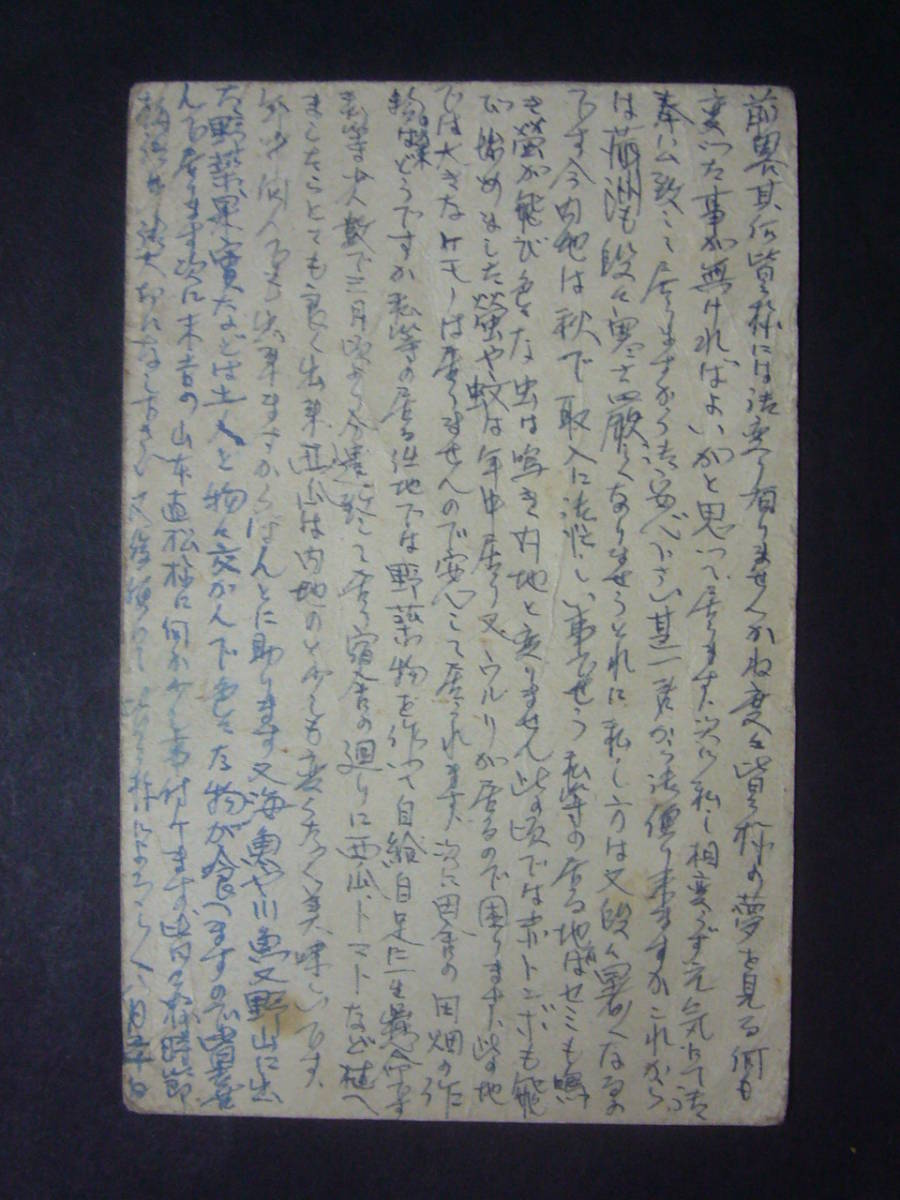 前略其后皆々様には御変り有りませんかね度々皆々様の夢を見る何も
変った事が無ければよいがと思って居ります次に私し相変らず元気にて御
奉公致して居りますから御安心下さい其一君から御便り来ますかこれから
は満洲も段々寒さも厳くなりませうそれに私し方は又段々暑くなるま
です今内地は秋で取入に御忙しい事でせう私等の居る地はせミも鳴
き螢が飛び色々な虫は鳴き内地と変りません此の頃では赤トンボも飛
び始めました螢や蚊は年中居り又ウルリが居るので困ります此の地
では大きなケモノは居りませんので安心して居られます次に田舎の田畑の作
物はどうですか私等の居る任地では野菜物を作って自給自足に一生懸命です
私等少人数で三月頃から分遣して居り宿舎の廻りに西瓜トマトなど植へ
ましたとても良く出来西瓜は内地のと少しも変りなく美味いです
何人 出来ますからほんとに助ります又海魚や川魚又野山に出
た野菜果実などは土人と物々交かんで色々な物が食へますので皆喜
んで居ります次に末吉の山本直松様に何か少し事付けます 時節
下さい 皆々様によろしく 月 日